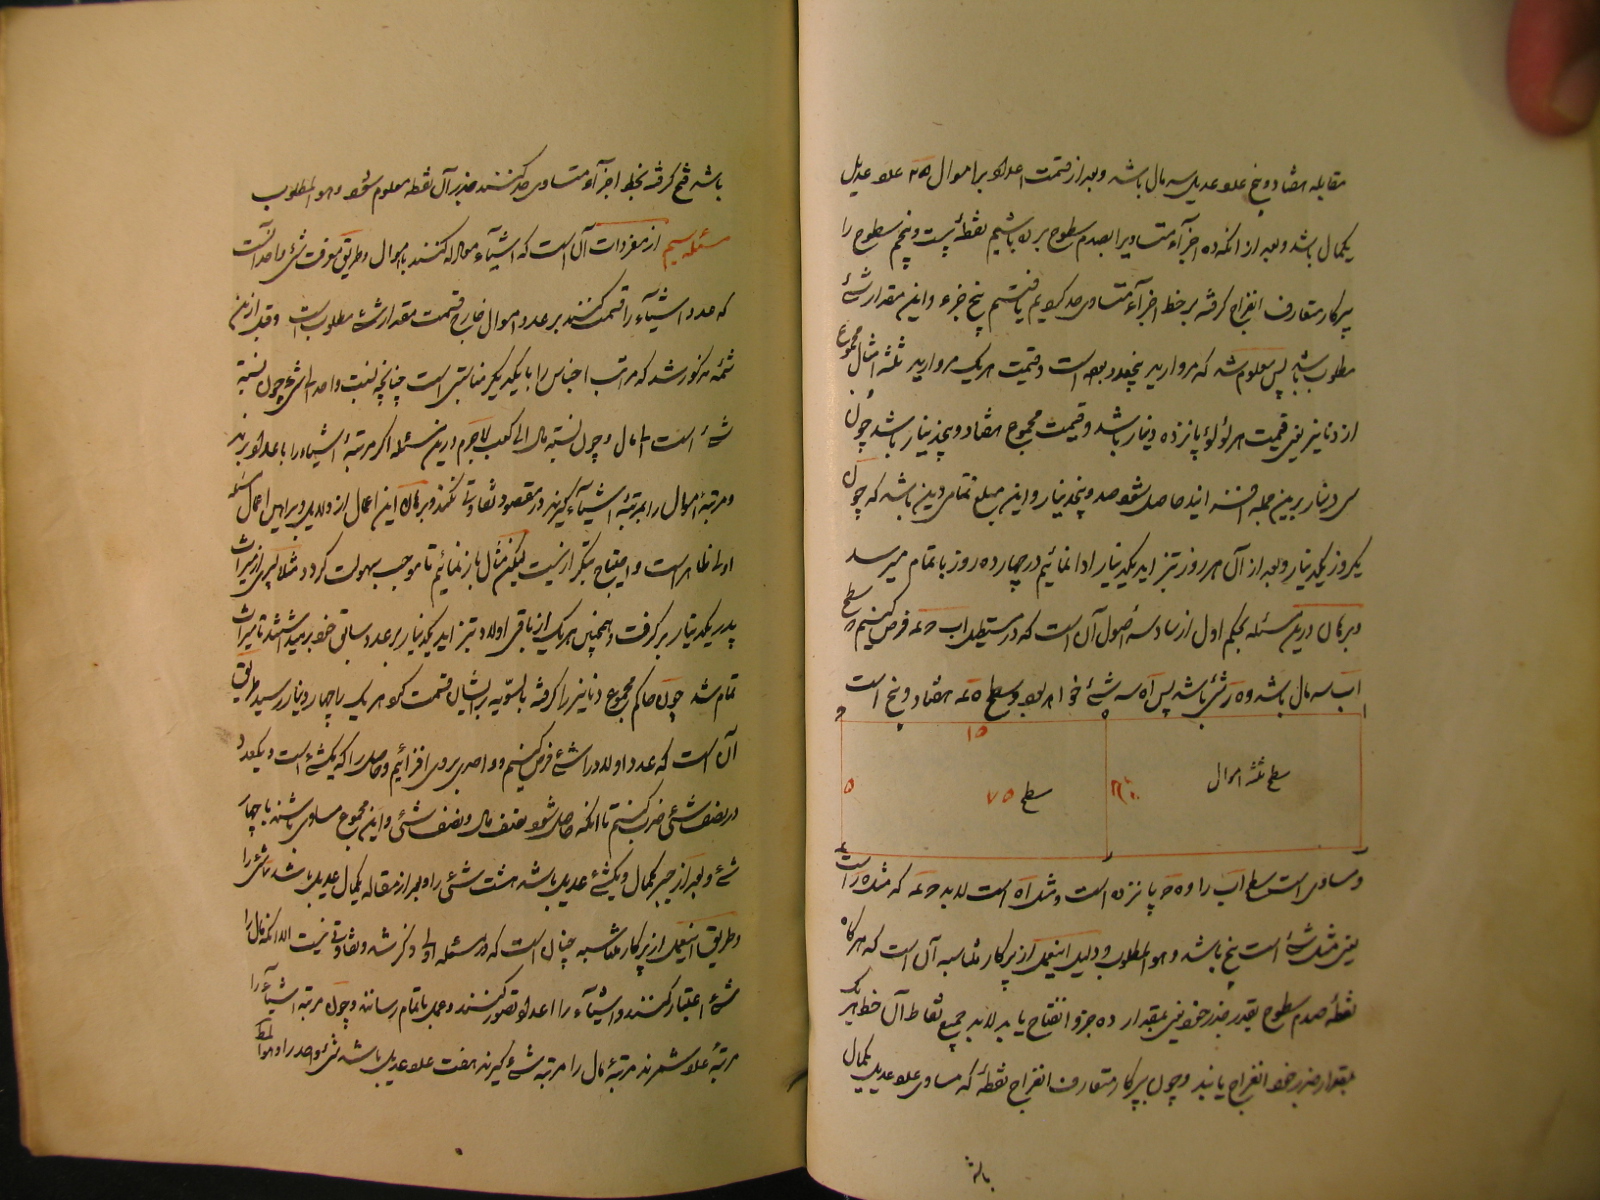 مقابله هفتاد و پنج عدد عدیل سه مال باشد و بعد از قسمت اعداد بر اموال ۲۵ عدد عدیل
یکمال باشد و بعد از آنکه ده اجزآء متساویرا بصدم سطوح برده باشیم نقطهٔ بیست و پنجم سطوح را
بپرکار متعارف انفراج گرفته بر خط اجزآء متساوی صد کردیم یافتیم پنج جزء و این مقدار شئ
مطلوب باشد پس معلوم شد که مروارید پنجعدد بوده است و قیمت هر یک مروارید ثلثه امثال مجموع
از دنانیر یعنی قیمت هر لؤلؤ پانزده دینار باشد و قیمت مجموع هفتاد و پنج دینار باشد چون
سی دینار برین جمله حاصل شود صد و پنج دینار و این مبلغ تمامی دین باشد که چون
یکروز یکدینار و بعد از آن هر روز بتزاید یکدینار ادا نمائیم در چهارده روز باتمام میرسد
و برهان درین مسئله بحکم اول از سادسه اصول آن است که در مستطیل اب حه فرض کنیم سطح
اب سه مال باشد و ه ر شئ باشد پس اه سه شئ خواهد بود و سطح هفتاد و پنج است
۱۵
سطح ثلثه اموال
سطح ۷۵
۵
و مساوی است سطح اب را و ه ح پانزده است
یعنی مثل شئ است پنج باشد و هو المطلوب و دلیل اینعمل از پرکار متناسبه آن است که هرگاه
نقطهٔ صدم سطوح بقدر جذر خود یعنی بمقدار ده جزو انفتاح یابد لابد جمیع نقاط آن خط هر یک
بمقدار جذر خود انفراج یابند و چون بپرکار متعارف انفراج نقطهٔ که مساوی عدد عدیل یکمال
باشد
باشد فتح گرفته بخط اجزآء متساوی صد کنند جذر آن نقطه معلوم شود و هو المطلوب
مسئله سیم از مفردات آن است که اشیآء معادله کنند باموال و طریق معرفت شئ واحد آنست
که عدد اشیآء را قسمت کنند بر عدد اموال خارج قسمت مقدار شئ مطلوب است و قبل ازین
شمهٔ مذکور شد که مراتب اجناس را با یکدیگر مناسبتی است چنانچه نسبت واحد الی شئ چون نسبت
شئ است الی مال و چون نسبته مال الی کعب لاجرم درین مسئله اگر مرتبهٔ اشیاء را باعداد برند
و مرتبهٔ اموال را بمرتبهٔ اشیآء گیرند در مقصود تفاوتی نکند و برهان این اعمال از دلایل و براهین اعمال مسئله
اولی ظاهر است و احتیاج بتکرار نیست لیکن مثال باز نمائیم تا موجب سهولت گردد مثلا پسری از میراث
پدر یکدینار برگرفت و همچنین هر یک از باقی اولاد بتزاید یکدینار بر عدد سابق خود برمیداشتند تا میراث
تمام شد چون حاکم مجموع دنانیر را گرفته بالسویه بر ایشان قسمت کرد هر یک را چهار دینار رسید طریق
آن است که عدد اولاد را شئ فرض کنیم و واحدی بروی افزائیم و حاصل را که یکشئ است و یکعدد
در نصف شئ ضرب کنیم تا آنکه حاصل شود نصف مال و نصف شئ و این مجموع مساوی باشند با چهار
شئ و بعد از جبر یکمال و یکشئ عدیل باشد هشت شئ را و بعد از مقابله یکمال عدیل باشد شئ را
و طریق اینعمل از پرکار متناسبه چنان است که در مسئله اولی ذکر شد و تفاوتی نیست الا آنکه مال را
شئ اعتبار کنند و اشیآء را اعداد تصور کنند و عمل باتمام رسانند و چون مرتبه اشیآء را
مرتبهٔ عدد شمرند مرتبهٔ مال را مرتبه شئ گیرند هفت عدد عدیل باشد شئ واحد را و هو المط